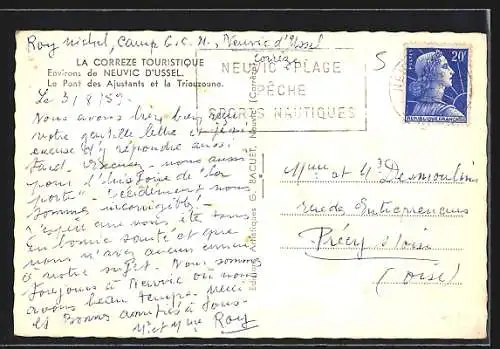 Roy Michel, Camp C.C.H., Neuvic d'Ussel
Corrèze
LA CORREZE TOURISTIQUE
Environs de NEUVIC D'USSEL.
Le Pont des Ajustants et la Triouzoune.
NEUVIC PLAGE
PÊCHE
SPORTS NAUTIQUES
20F
REPUBLIQUE FRANÇAISE
Le 3/8/59.
Nous avons bien reçu
votre gentille lettre et
excuse d'y répondre aussi
tard. Excusez-nous aussi
pour l'histoire de "la
porte". Décidément nous
sommes incorrigibles!
J'espère que vous êtes tous
en bonne santé et que
vous n'avez aucun ennui
à votre sujet. Nous sommes
toujours à Neuvic où nous
avons beau temps.
et bonnes amitiés à tous.
Mr et Mme Roy
Editions Artistiques G. SAGUET, Neuvic (Corrèze)
Mme et Mr Desmoulins
rue des Entrepreneurs
Précy s/Oise
(Oise)